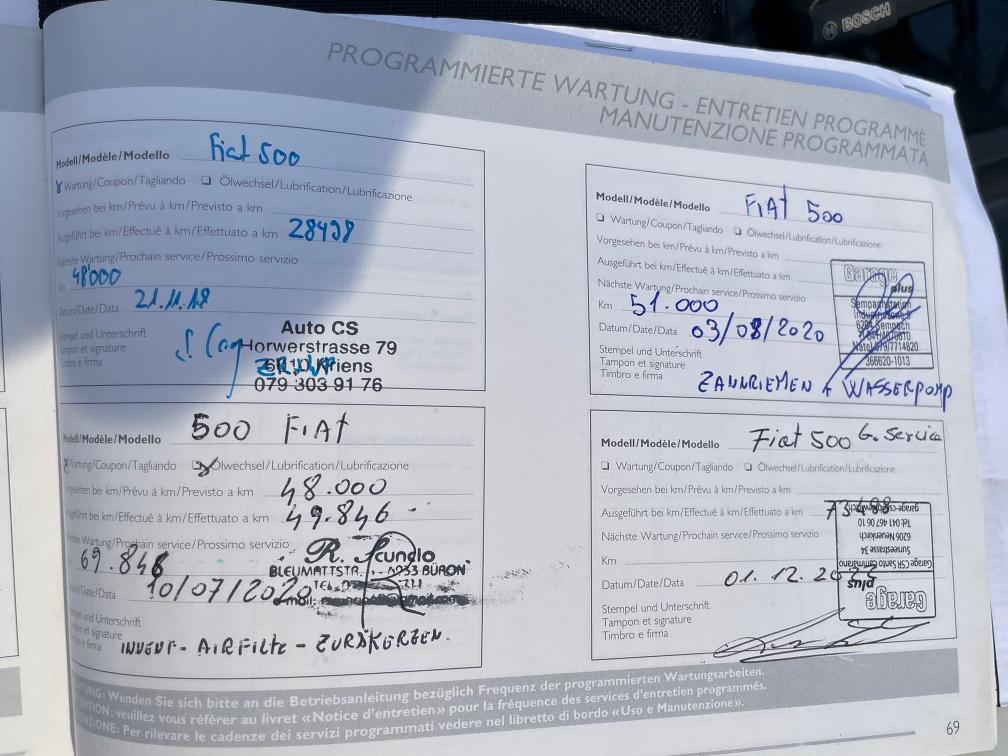 BOSCH
PROGRAMMIERTE WARTUNG - ENTRETIEN PROGRAMMÉ
MANUTENZIONE PROGRAMMATA
Modell/Modèle/Modello Fiat 500
Wartung/Coupon/Tagliando ❏ Ölwechsel/Lubrification/Lubrificazione
Vorgesehen bei km/Prévu à km/Previsto a km
Ausgeführt bei km/Effectué à km/Effettuato a km 28498
Nächste Wartung/Prochain service/Prossimo servizio
48'000
Datum/Date/Data 21.11.18
Stempel und Unterschrift
Tampon et signature
Timbro e firma
Auto CS
Horwerstrasse 79
6010 Kriens
079 303 91 76
Modell/Modèle/Modello 500 FIAT
Wartung/Coupon/Tagliando ❏ Ölwechsel/Lubrification/Lubrificazione
Vorgesehen bei km/Prévu à km/Previsto a km 48.000
Ausgeführt bei km/Effectué à km/Effettuato a km 49.846
Nächste Wartung/Prochain service/Prossimo servizio
69.846
Datum/Date/Data 10/07/2020
R. Scundlo
BLEUMATTSTR. 6233 BÜRON
Stempel und Unterschrift
Tampon et signature
Timbro e firma
INNENF- AIRFILTE - ZURÄKERZEN.
Modell/Modèle/Modello FIAT 500
❏ Wartung/Coupon/Tagliando ❏ Ölwechsel/Lubrification/Lubrificazione
Vorgesehen bei km/Prévu à km/Previsto a km
Ausgeführt bei km/Effectué à km/Effettuato a km
Nächste Wartung/Prochain service/Prossimo servizio
Km 51.000
Datum/Date/Data 03/08/2020
Stempel und Unterschrift
Tampon et signature
Timbro e firma
ZANNRIEMEN + WASSERPOMP
Garage
plus
Sempachstation
6204 Sempach
366620-1013
Modell/Modèle/Modello Fiat 500 G. Service
❏ Wartung/Coupon/Tagliando ❏ Ölwechsel/Lubrification/Lubrificazione
Vorgesehen bei km/Prévu à km/Previsto a km
Ausgeführt bei km/Effectué à km/Effettuato a km 73488
Nächste Wartung/Prochain service/Prossimo servizio
Km
Datum/Date/Data 01.12.20
Stempel und Unterschrift
Tampon et signature
Timbro e firma
Garage
plus
Garage CSR Santo Cammarano
Surseestrasse 34
6206 Neuenkirch
Tel. 041 467 06 10
WARTUNG: Wenden Sie sich bitte an die Betriebsanleitung bezüglich Frequenz der programmierten Wartungsarbeiten.
ATTENTION: veuillez vous référer au livret «Notice d'entretien» pour la fréquence des services d'entretien programmés.
ATTENZIONE: Per rilevare le cadenze dei servizi programmati vedere nel libretto di bordo «Uso e Manutenzione».
69